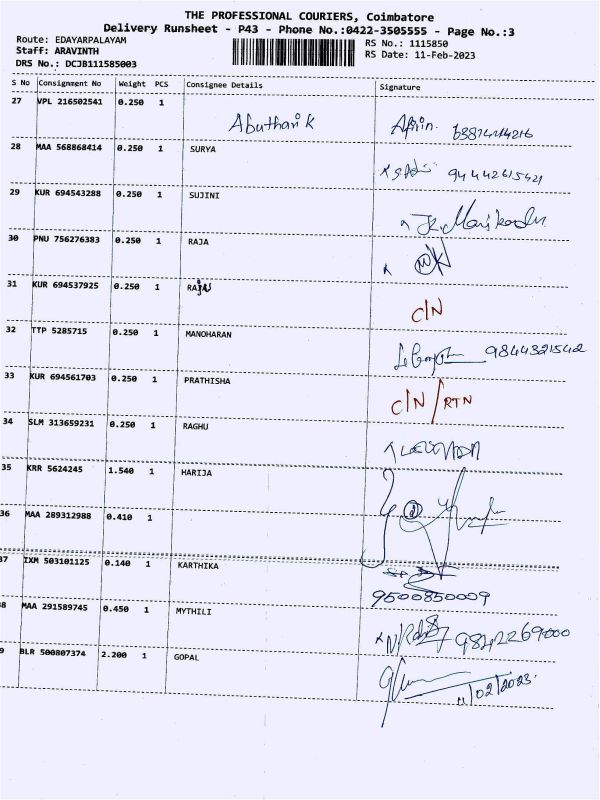 THE PROFESSIONAL COURIERS, Coimbatore
Delivery Runsheet - P43 - Phone No.:0422-3505555 - Page No.:3
Route: EDAYARPALAYAM
RS No.: 1115850
Staff: ARAVINTH
RS Date: 11-Feb-2023
DRS No.: DCJB111585003
S No Consignment No Weight PCS Consignee Details Signature
27 VPL 216502541 0.250 1 Abutharik
28 MAA 568868414 0.250 1 SURYA 94442615421
29 KUR 694543288 0.250 1 SUJINI
30 PNU 756276383 0.250 1 RAJA
31 KUR 694537925 0.250 1 C/N
32 TTP 5285715 0.250 1 MANOHARAN 9844321542
33 KUR 694561703 0.250 1 PRATHISHA C/N / RTN
34 SLM 313659231 0.250 1 RAGHU
35 KRR 5624245 1.540 1 HARIJA
36 MAA 289312988 0.410 1
37 IXM 503101125 0.140 1 KARTHIKA 9500850009
8 MAA 291589745 0.450 1 MYTHILI 9842269000
9 BLR 500807374 2.200 1 GOPAL 11/02/2023